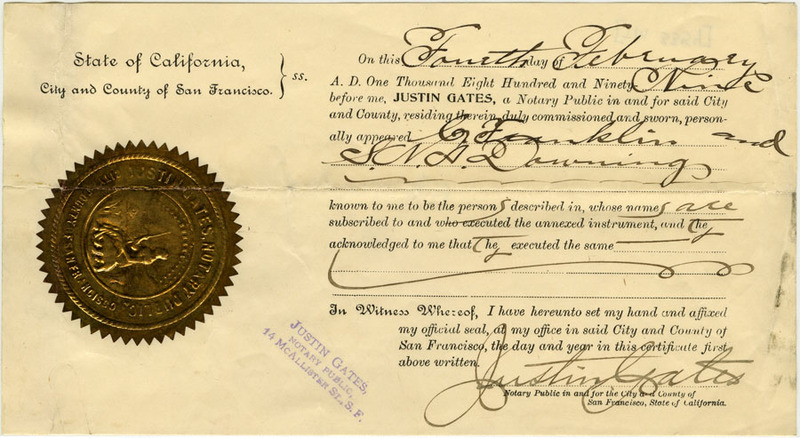 State of California,
City and County of San Francisco.
ss.
On this Fourth day of February
A. D. One Thousand Eight Hundred and Ninety Nine
before me, JUSTIN GATES, a Notary Public in and for said City
and County, residing therein, duly commissioned and sworn, person-
ally appeared C Franklin and
S. N. A. Downing
known to me to be the persons described in, whose names are
subscribed to and who executed the annexed instrument, and they
acknowledged to me that they executed the same
In Witness Whereof, I have hereunto set my hand and affixed
my official seal, at my office in said City and County of
San Francisco, the day and year in this certificate first
above written.
Justin Gates
Notary Public in and for the City and County of
San Francisco, State of California.
JUSTIN GATES,
NOTARY PUBLIC,
14 MCALLISTER ST., S. F.
JUSTIN GATES, NOTARY PUBLIC
SAN FRANCISCO